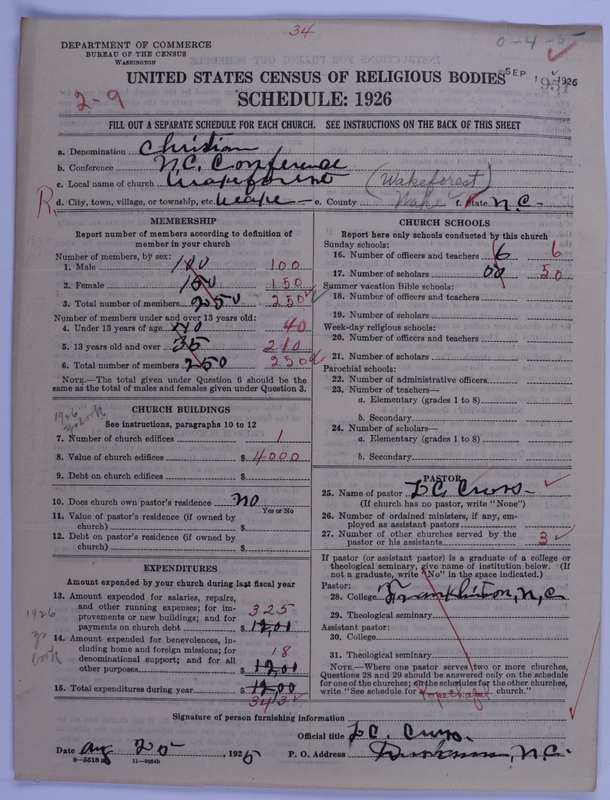 34
0-4-5
DEPARTMENT OF COMMERCE
BUREAU OF THE CENSUS
WASHINGTON
UNITED STATES CENSUS OF RELIGIOUS BODIES
SEP 1926
2-9
SCHEDULE: 1926
FILL OUT A SEPARATE SCHEDULE FOR EACH CHURCH. SEE INSTRUCTIONS ON THE BACK OF THIS SHEET
a. Denomination Christian
b. Conference N.C. Conference
c. Local name of church Wakeforest (Wakeforest)
R d. City, town, village, or township, etc. Wake e. County Wake f. State N.C.
MEMBERSHIP
Report number of members according to definition of
member in your church
Number of members, by sex:
1. Male 100 100
2. Female 150 150
3. Total number of members 250 250
Number of members under and over 13 years old:
4. Under 13 years of age 40
5. 13 years old and over 35 210
6. Total number of members 250 250
NOTE.—The total given under Question 6 should be the
same as the total of males and females given under Question 3.
CHURCH BUILDINGS
See instructions, paragraphs 10 to 12
1926
7. Number of church edifices 1
8. Value of church edifices $ 4000
9. Debt on church edifices $
10. Does church own pastor's residence no
Yes or No
11. Value of pastor's residence (if owned by
church) $
12. Debt on pastor's residence (if owned by
church) $
EXPENDITURES
Amount expended by your church during last fiscal year
13. Amount expended for salaries, repairs,
and other running expenses; for im-
provements or new buildings; and for
payments on church debt $ 12,01 325
1926
book
14. Amount expended for benevolences, in-
cluding home and foreign missions; for
denominational support; and for all
other purposes $ 12,01 18
15. Total expenditures during year $ 12,00
343
CHURCH SCHOOLS
Report here only schools conducted by this church
Sunday schools:
16. Number of officers and teachers 6 6
17. Number of scholars 50
Summer vacation Bible schools:
18. Number of officers and teachers
19. Number of scholars
Week-day religious schools:
20. Number of officers and teachers
21. Number of scholars
Parochial schools:
22. Number of administrative officers
23. Number of teachers—
a. Elementary (grades 1 to 8)
b. Secondary
24. Number of scholars—
a. Elementary (grades 1 to 8)
b. Secondary
PASTOR
25. Name of pastor
(If church has no pastor, write "None")
26. Number of ordained ministers, if any, em-
ployed as assistant pastors
27. Number of other churches served by the
pastor or his assistants 3
If pastor (or assistant pastor) is a graduate of a college or
theological seminary, give name of institution below. (If
not a graduate, write "No" in the space indicated.)
Pastor:
28. College Franklinton, N, C
29. Theological seminary
Assistant pastor:
30. College
31. Theological seminary
NOTE.—Where one pastor serves two or more churches,
Questions 28 and 29 should be answered only on the schedule
for one of the churches; on the schedules for the other churches,
write "See schedule for church."
Signature of person furnishing information
Official title
Date Aug 25, 1926 P. O. Address N.C.
8—5518 a 11—9054b